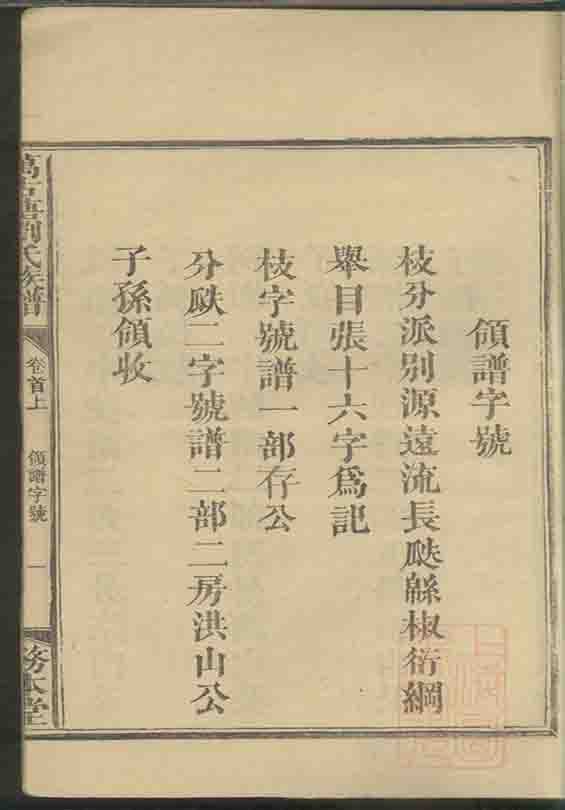 領譜字號
枝分派別源遠流長瓞緜椒衍綱
舉目張十六字爲記
枝字號譜一部存公
分瓞二字號譜二部二房洪山公
子孫領收
劉氏族譜
卷首上
領譜字號
一
務本堂